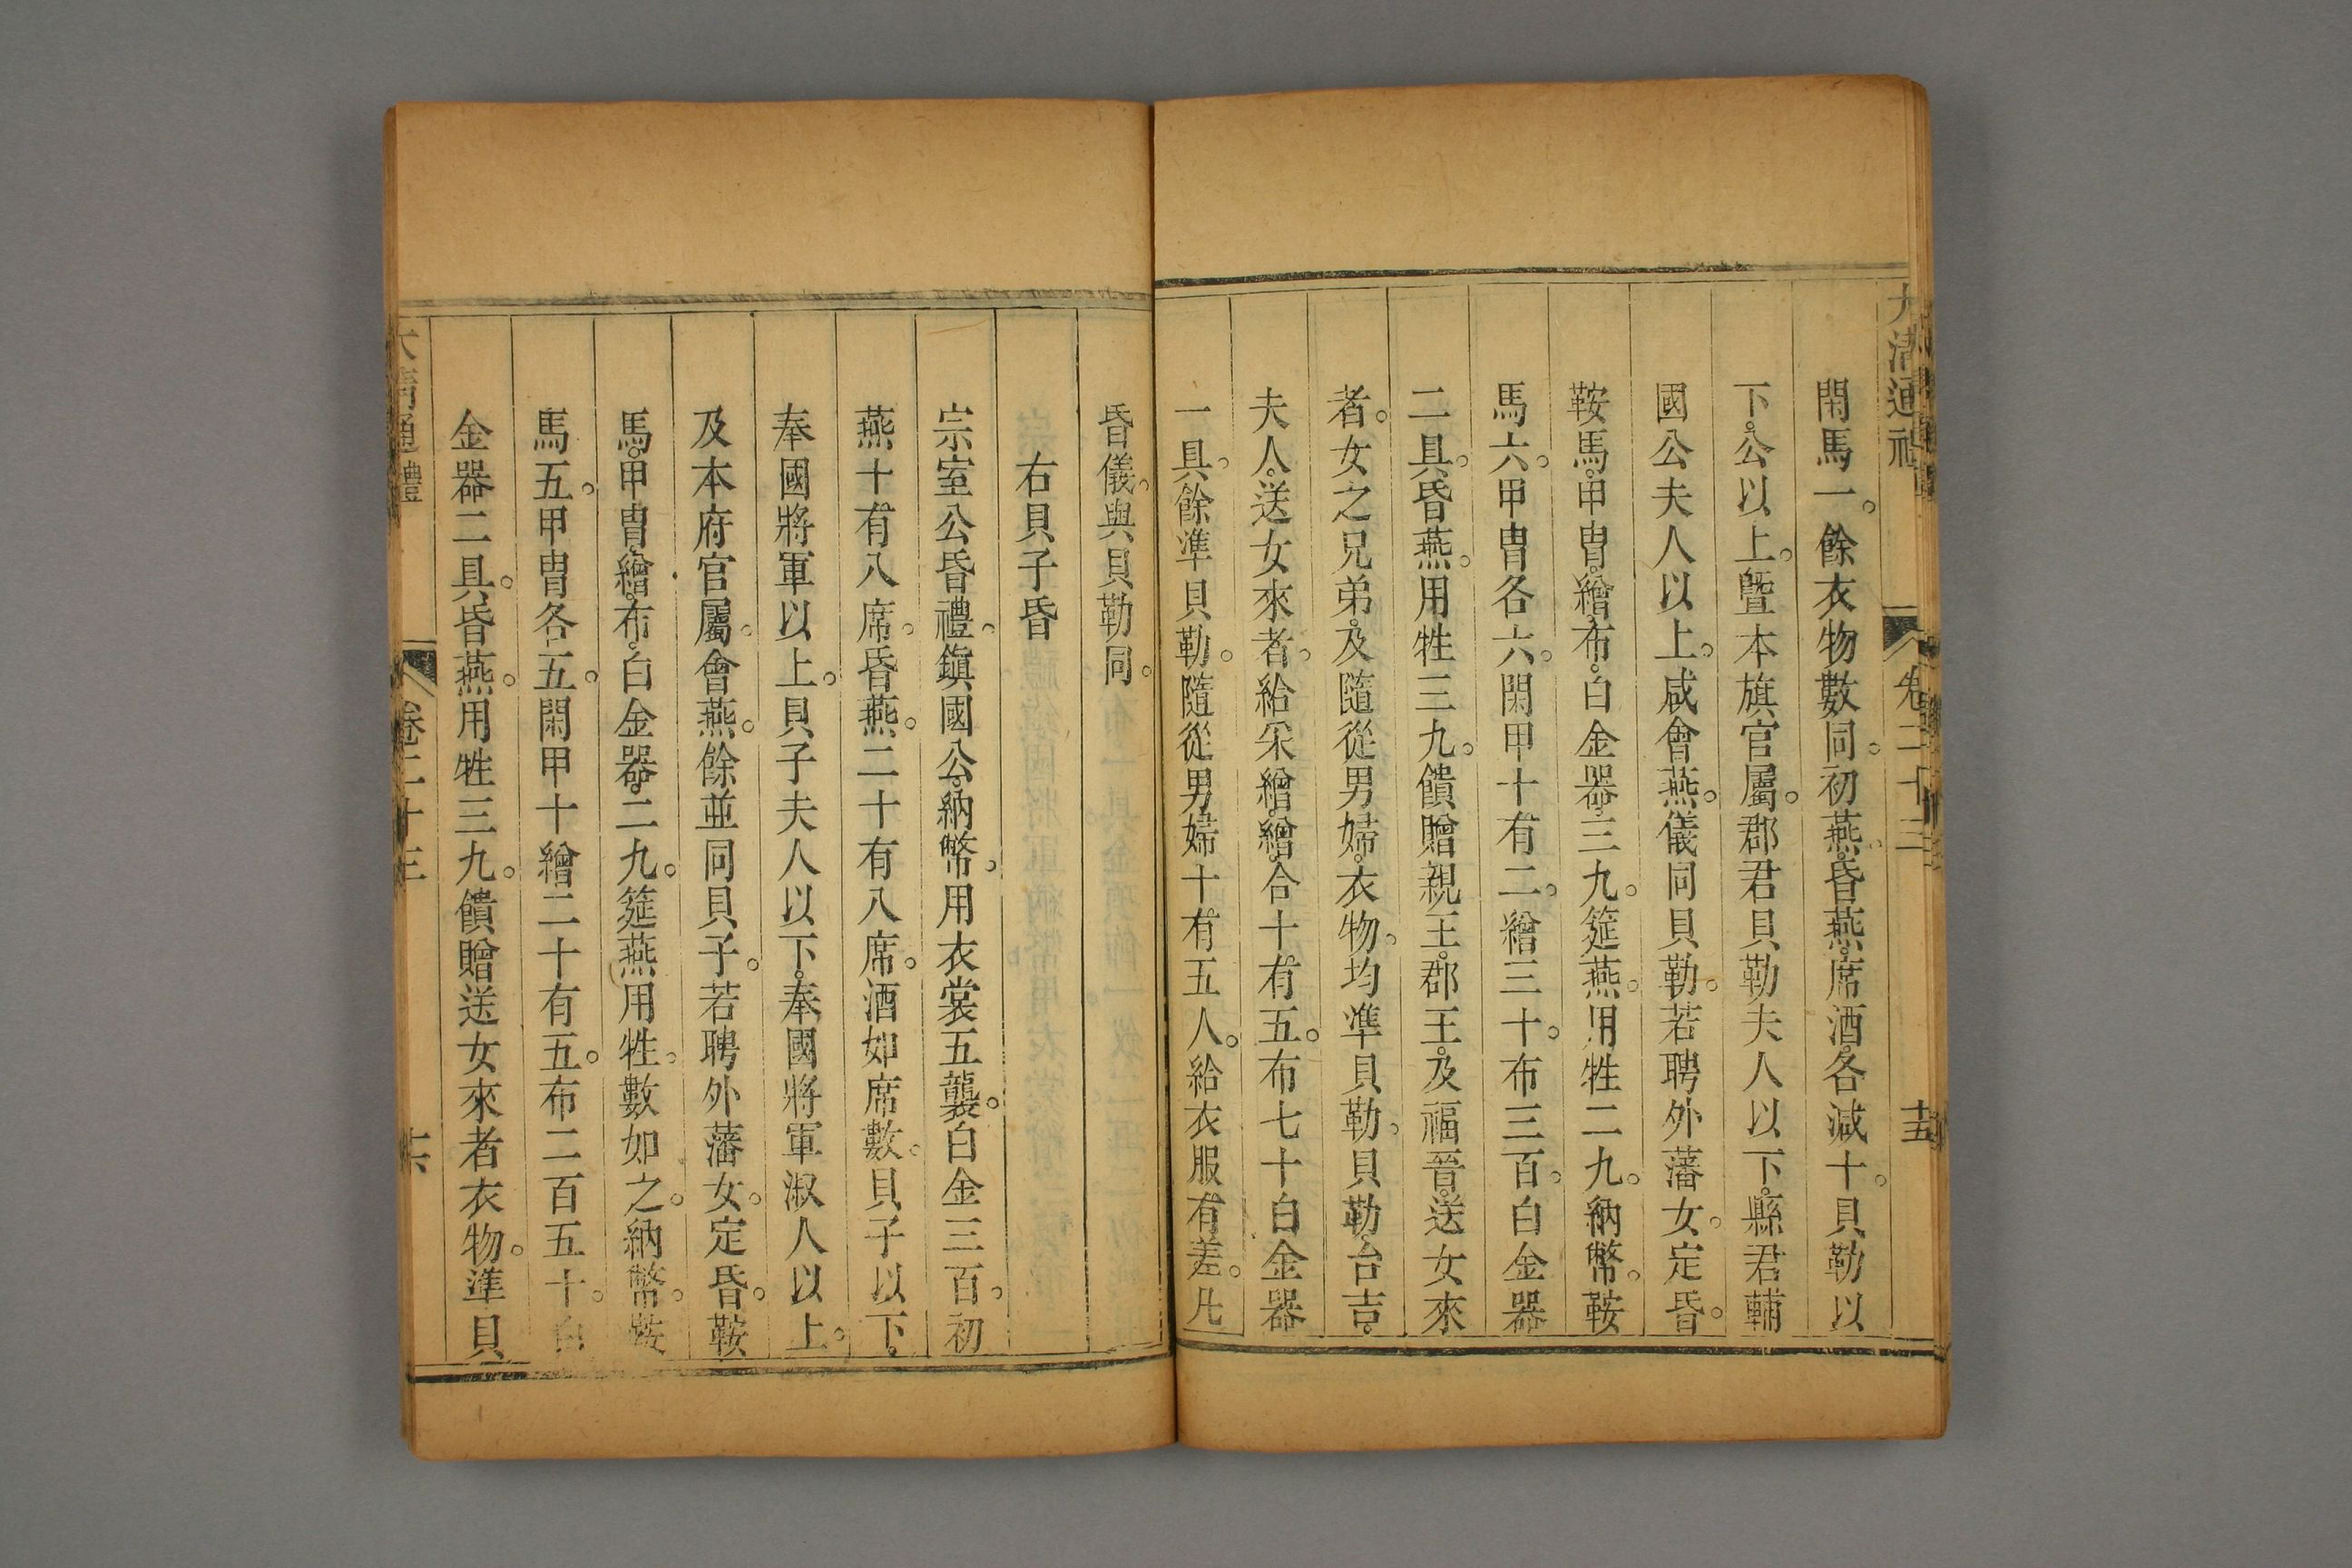 大清通禮 卷二十三 十五
閑馬一。餘衣物數同。初燕。昏燕。席酒。各減十。貝勒以
下。公以上。曁本旗官屬。郡君貝勒夫人以下。縣君輔
國公夫人以上。咸會燕。儀同貝勒。若聘外藩女。定昏。
鞍馬。甲胄。繒。布。白金器。三九。筵燕。用牲二九。納幣。鞍
馬六。甲胄各六。閑甲十有二。繒三十。布三百。白金器
二具。昏燕。用牲三九。饋贈親王。郡王。及福晉。送女來
者。女之兄弟。及隨從男婦。衣物。均準貝勒。貝勒。台吉。
夫人。送女來者。給采繒。繒。合十有五。布七十。白金器
一具。餘準貝勒。隨從男婦十有五人。給衣服有差。凡
昏儀。與貝勒同。
右貝子昏
宗室公昏禮。鎭國公。納幣。用衣裳五襲。白金三百。初
燕十有八席。昏燕。二十有八席。酒如席數。貝子以下。
奉國將軍以上。貝子夫人以下。奉國將軍淑人以上。
及本府官屬。會燕。餘並同貝子。若聘外藩女。定昏。鞍
馬。甲胄。繒。布。白金器。二九。筵燕用牲。數如之。納幣。鞍
馬五。甲胄各五。閑甲十。繒二十有五。布二百五十。白
金器二具。昏燕。用牲三九。饋贈送女來者衣物。準貝
大清通禮 卷二十三 十六